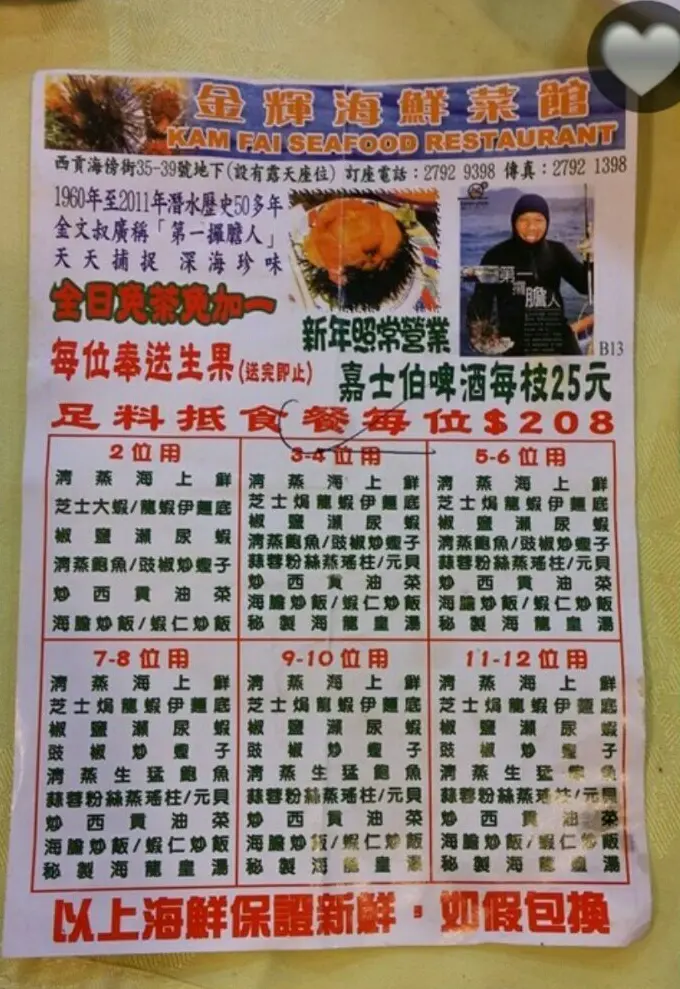 金輝海鮮菜館
KAM FAI SEAFOOD RESTAURANT
西貢海傍街35-39號地下(設有露天座位) 訂座電話：2792 9398 傳真：2792 1398
1960年至2011年潛水歷史50多年
金文叔廣稱「第一攞膽人」
天天捕捉 深海珍味
全日免茶免加一
新年照常營業
第一攞膽人
B13
每位奉送生果(送完即止)
嘉士伯啤酒每枝25元
足料抵食餐每位$208
2位用
清蒸海上鮮
芝士大蝦/龍蝦伊麵底
椒鹽瀨尿蝦
清蒸鮑魚/豉椒炒蟶子
炒西貢油菜
海膽炒飯/蝦仁炒飯
3-4位用
清蒸海上鮮
芝士焗龍蝦伊麵底
椒鹽瀨尿蝦
清蒸鮑魚/豉椒炒蟶子
蒜蓉粉絲蒸瑤柱/元貝
炒西貢油菜
海膽炒飯/蝦仁炒飯
秘製海龍皇湯
5-6位用
清蒸海上鮮
芝士焗龍蝦伊麵底
椒鹽瀨尿蝦
清蒸鮑魚/豉椒炒蟶子
蒜蓉粉絲蒸瑤柱/元貝
炒西貢油菜
海膽炒飯/蝦仁炒飯
秘製海龍皇湯
7-8位用
清蒸海上鮮
芝士焗龍蝦伊麵底
椒鹽瀨尿蝦
豉椒炒蟶子
清蒸生猛鮑魚
蒜蓉粉絲蒸瑤柱/元貝
炒西貢油菜
海膽炒飯/蝦仁炒飯
秘製海龍皇湯
9-10位用
清蒸海上鮮
芝士焗龍蝦伊麵底
椒鹽瀨尿蝦
豉椒炒蟶子
清蒸生猛鮑魚
蒜蓉粉絲蒸瑤柱/元貝
炒西貢油菜
海膽炒飯/蝦仁炒飯
秘製海龍皇湯
11-12位用
清蒸海上鮮
芝士焗龍蝦伊麵底
椒鹽瀨尿蝦
豉椒炒蟶子
清蒸生猛鮑魚
蒜蓉粉絲蒸瑤柱/元貝
炒西貢油菜
海膽炒飯/蝦仁炒飯
秘製海龍皇湯
以上海鮮保證新鮮，如假包換